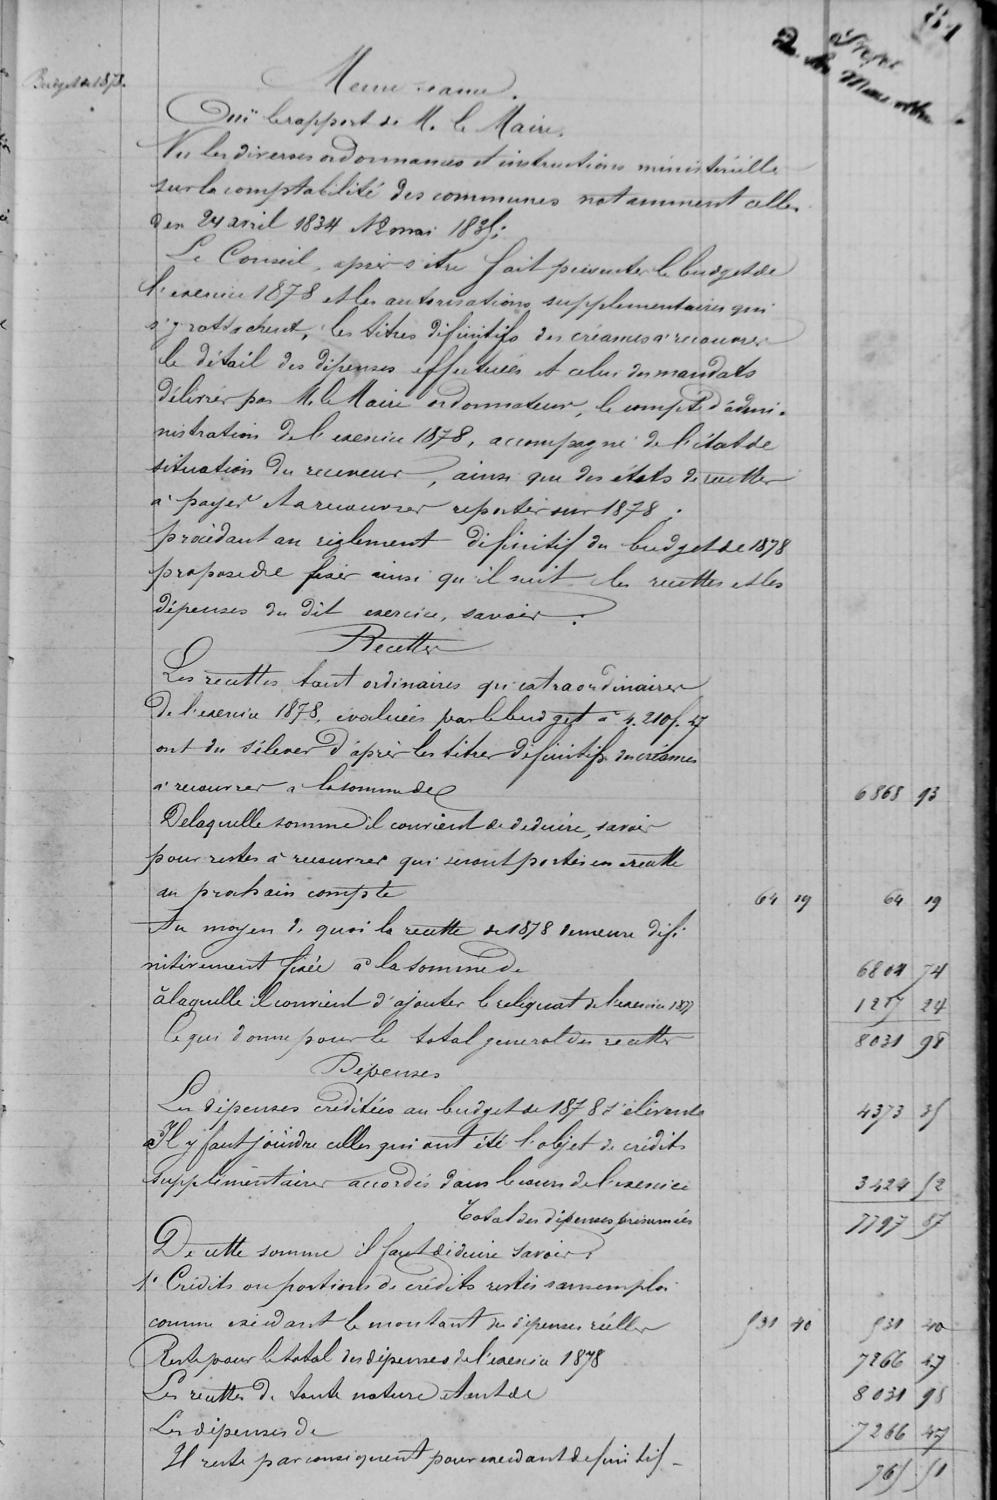 81
Budget de 1878.
Même séance.
Ouï le rapport de M. le Maire,
Vu les diverses ordonnances et instructions ministérielle
sur la comptabilité des communes notamment celles
des 24 avril 1834 12 mai 1835;
Le Conseil, après s'être fait présenter le budget de
l'exercice 1878 et les autorisations supplémentaires qui
s'y rattachent, les titres définitifs des créances à recouvrer
le détail des dépenses effectuées et celui des mandats
délivrés par M. le Maire ordonnateur, le compte d'admi-
nistration de l'exercice 1878, accompagné de l'état de
situation du receveur, ainsi que des états de restes
à payer et à recouvrer reportés sur 1878.
procédant au règlement définitif du budget de 1878
propose de fixer ainsi qu'il suit les recettes et les
dépenses du dit exercice, savoir:
Recettes
Les recettes tant ordinaires qu'extraordinaires
de l'exercice 1878, évaluées par le budget à 4.210f.47
ont du s'élever d'après les titres définitifs des créances
à recouvrer à la somme de 6868 93
De laquelle somme il convient de déduire, savoir
pour restes à recouvrer qui seront portés en recette
au prochain compte 64 19 64 19
Au moyen de quoi la recette de 1878 demeure défi
nitivement fixée à la somme de 6804 74
à laquelle il convient d'ajouter le reliquat de l'exercice 1877 1227 24
Ce qui donne pour le total général des recettes 8031 98
Dépenses
Les dépenses créditées au budget de 1878 s'élèvent à 4373 35
Il y faut joindre celles qui ont été l'objet de crédits
supplémentaires accordés dans le cours de l'exercice 3424 52
Total des dépenses présumées 7797 87
De cette somme il faut déduire savoir:
1° Crédits ou portions de crédits restés sans emploi
comme excédant le montant des dépenses réelles 531 40 531 40
Reste pour le total des dépenses de l'exercice 1878 7266 47
Les recettes de toute nature étant de 8031 98
Les dépenses de 7266 47
Il reste par conséquent pour excédant définitif - 765 51